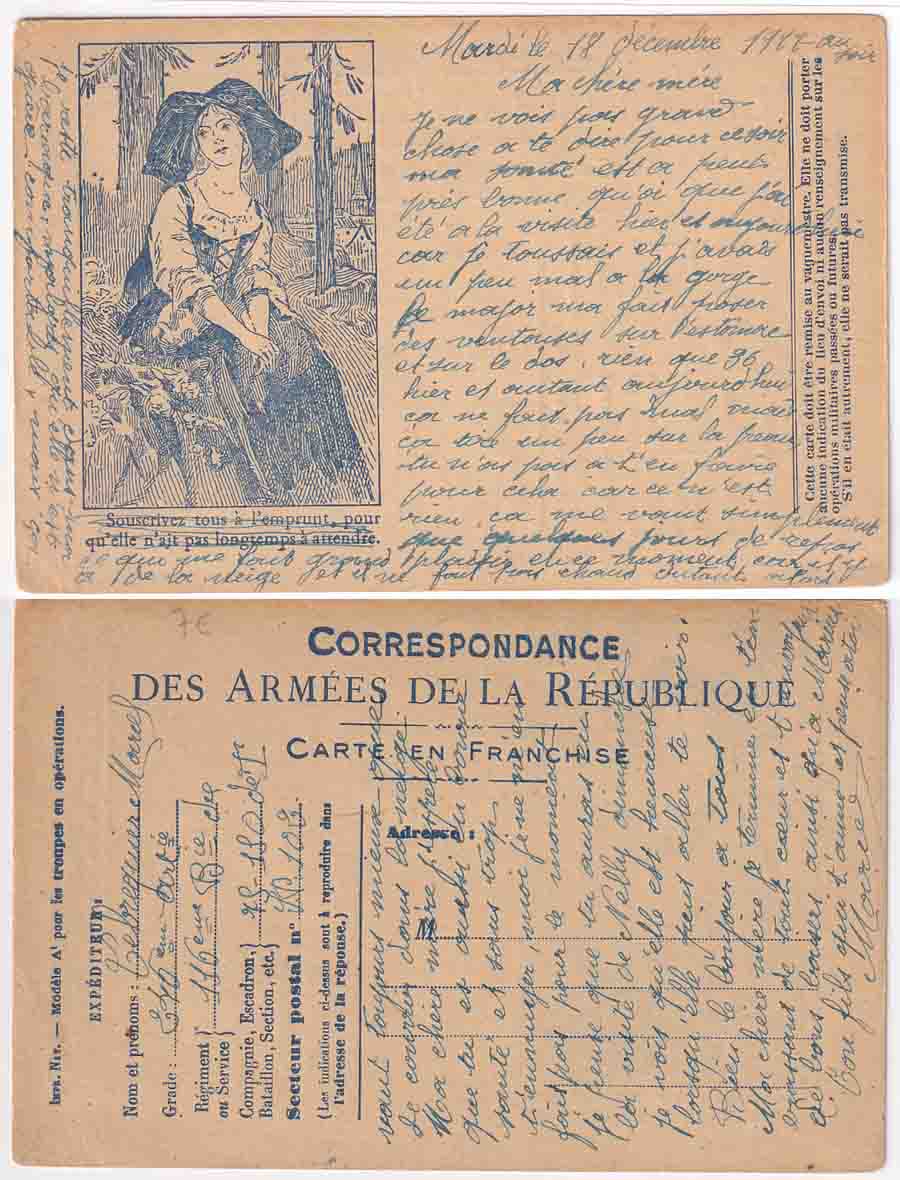 Mardi le 18 décembre 1917 au
soir
Ma chère mére
Je ne vois pas grand
chose a te dire pour ce soir
ma santé est a peut
près bonne quoi que j'ai
été a la visite hier et aujourdhui
car je toussais et j'avais
un peu mal a la gorge
le major ma fait poser
des ventouses sur l'estomac
et sur le dos, rien que 36
hier et autant aujourdhui
ca ne fait pas mal mais
ca tire un peu sur la peau
tu n'as pas a t'en faire
pour cela car ce n'est
rien, ca me vaut simplement
que quelques jours de repos
ce qui me fait grand plaisir en ce moment, car il y
a de la neige et il ne fait pas chaud autant alors
Souscrivez tous à l'emprunt, pour
qu'elle n'ait pas longtemps à attendre.
Cette carte doit être remise au vaguemestre. Elle ne doit porter
aucune indication du lieu d'envoi ni aucun renseignement sur les
opérations militaires passées ou futures.
S'il en était autrement, elle ne serait pas transmise.
7€
CORRESPONDANCE
DES ARMÉES DE LA RÉPUBLIQUE
CARTE EN FRANCHISE
Impr. Niv. — Modèle A¹ pour les troupes en opérations.
EXPÉDITEUR:
Nom et prénoms :
Grade :
Régiment
ou Service 116eme Bie de
Compagnie, Escadron,
Bataillon, Section, etc.
Secteur postal n°
(Les indications ci-dessus sont à reproduire dans
l'adresse de la réponse.)
Adresse :
M
sont toujours mieux que
de courir dans la neige
Ma chère mère j'espère
que tu es aussi en bonne
santé et sans trop
t'ennuyer, moi je ne m'en
fais pas pour le moment
Je pense que tu auras eu
la visite de Nelly dimanche
Je vois qu'elle est heureuse
lorsqu'elle peut aller te voir.
Bien le bonjour a tous
Ma chère mère je termine en t'em
brassant de tout cœur et t'envoi
de bons baisers ainsi qu'a
Ton fils qui t'aime et pense a toi